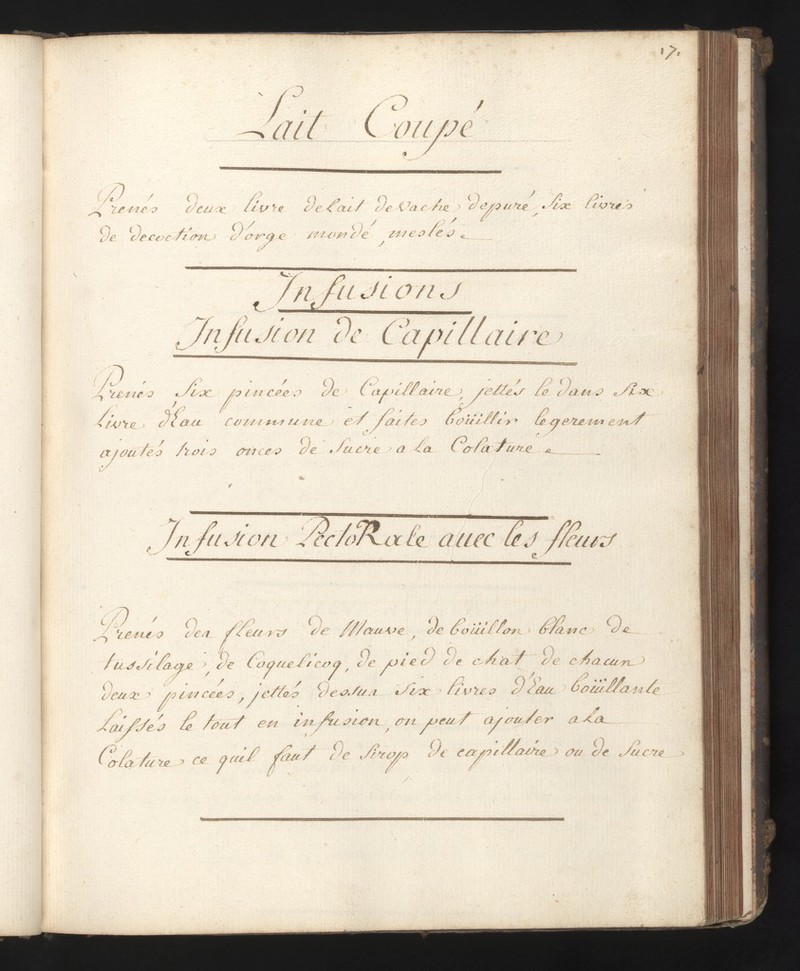 17.
Lait Coupé
Prenés deux livre de Lait de Vache depuré, Six livres
de decoction d'orge mondé, meslés.
Infusions
Infusion de Capillaire
Prenés Six pincées de Capillaire, jettés le dans Six
Livre d'Eau commune et faites boüillir legerement
ajoutés trois onces de Sucre a la Colature.
Infusion PectoRale avec les fleurs
Prenés des fleurs de Mauve, de boüillon blanc de
tussilage, de Coquelicoq, de pied de chat de chacun
deux pincées, jettés dessus Six livres d'Eau boüillante
Laissés le tout en infusion, on peut ajouter a La
Colature ce quil faut de Sirop de capillaire ou de Sucre